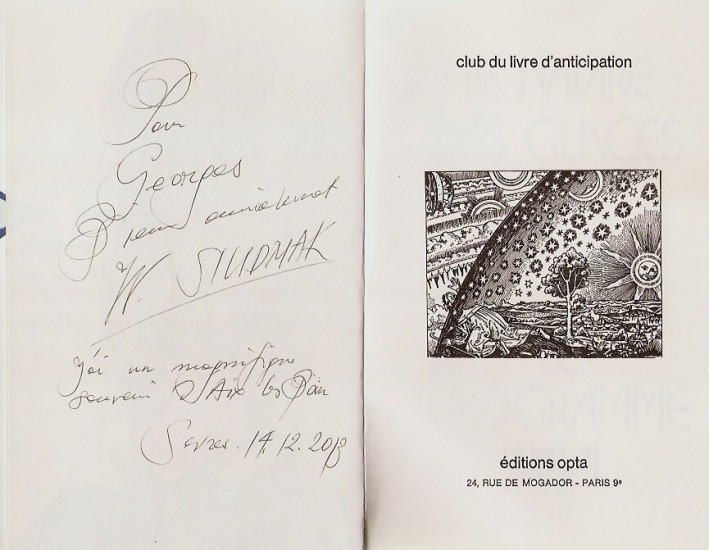 Pour
Georges
Bien amicalement
W. SIUDMAK
J'ai un magnifique
souvenir d'Aix les Bain
Sevres. 14.12.2013
club du livre d'anticipation
éditions opta
24, RUE DE MOGADOR - PARIS 9e